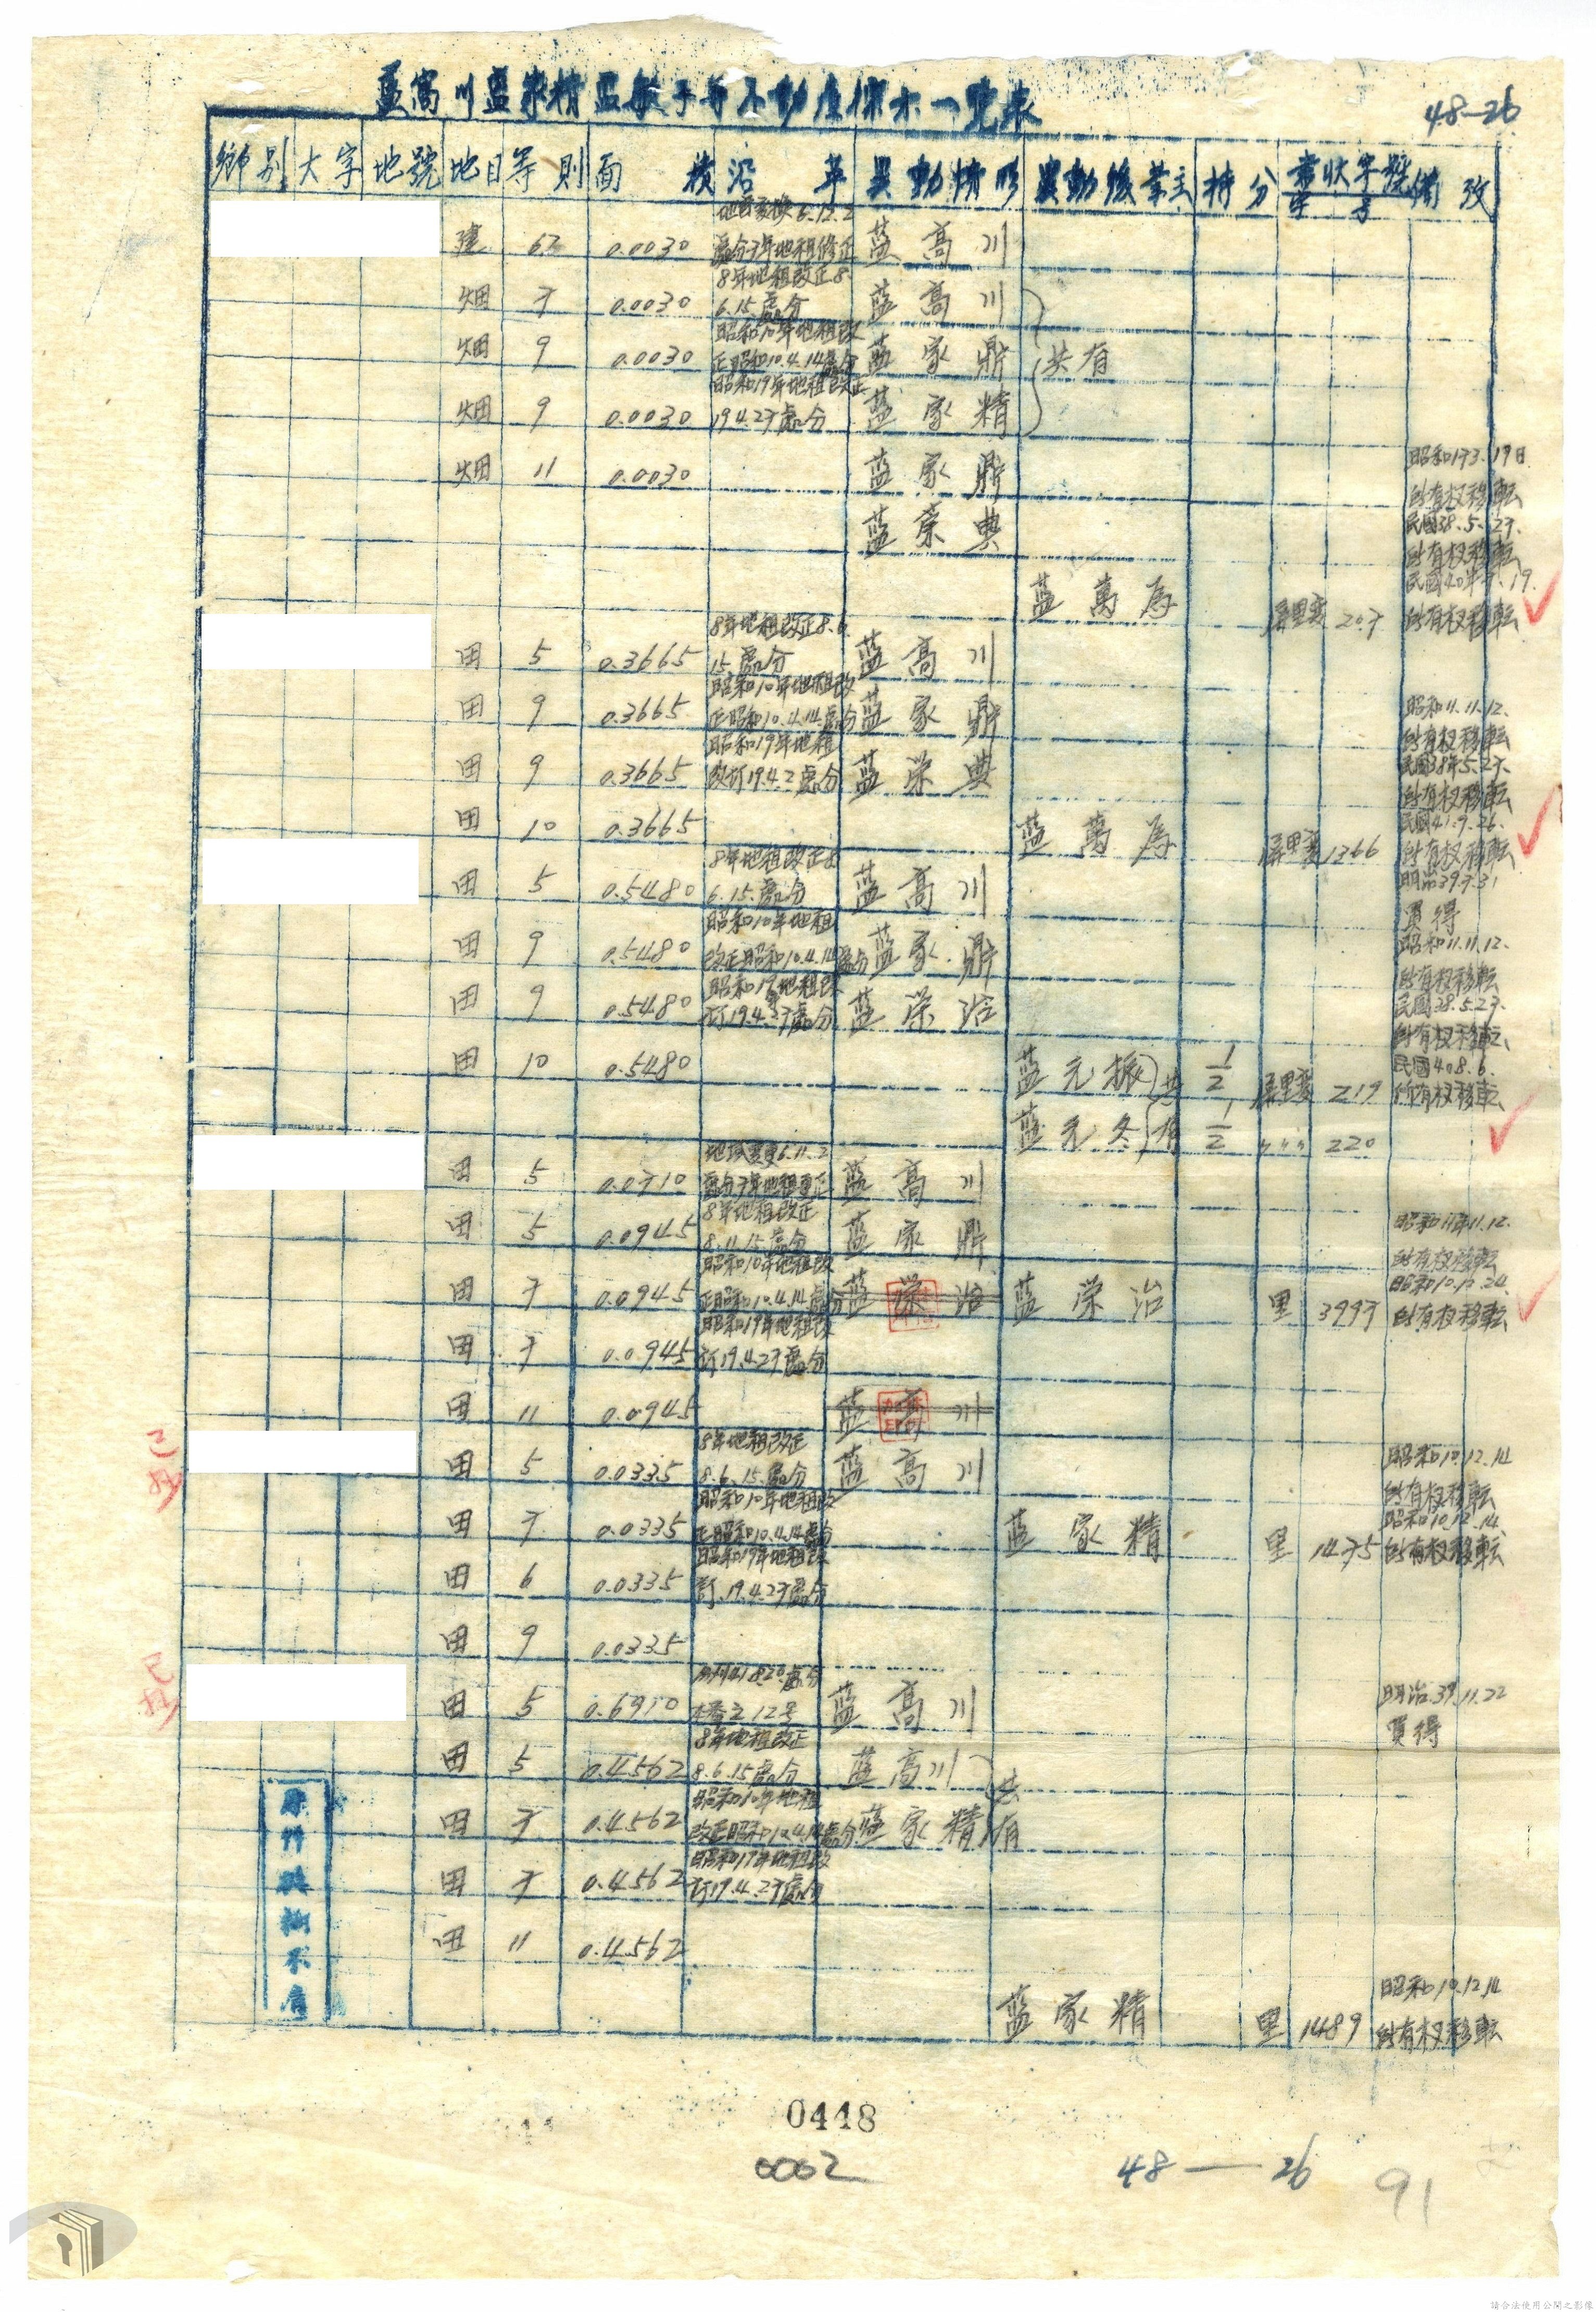 藍高川藍家精藍敏子等不動產標示一覽表
48-26
鄉別 大字 地號 地目 等則 面積 沿革 異動情形 異動後業主 持分 備攷
建 62 0.0030 藍高川
畑 7 0.0030 8年地租改正8.6.15.處分 藍高川
畑 9 0.0030 昭和10年地租改正昭和10.4.14處分 藍家鼎 共有
畑 9 0.0030 昭和19年地租改正19.4.27處分 藍家精
畑 11 0.0030 藍家鼎
所有权移転
藍榮典 民國38.5.27.
所有权移転
藍萬為 屏里变 207 所有权移転
田 5 0.3665 8年地租改正8.6.15處分 藍高川
田 9 0.3665 昭和10年地租改正昭和10.4.14.處分 藍家鼎 昭和11.11.12.
所有权移転
田 9 0.3665 昭和19年地租改訂19.4.2處分 藍榮典 民國38年5.27.
所有权移転
田 10 0.3665 藍萬為 屏里变 1366 民國41.9.26.
所有权移転
田 5 0.5480 8年地租改正8.6.15.處分 藍高川 明治39.7.31
買得
田 9 0.5480 昭和10年地租改正昭和10.4.14處分 藍家鼎 昭和11.11.12.
所有权移転
田 9 0.5480 昭和19年地租改訂19.4.27處分 藍榮治 民國38.5.27.
所有权移転
田 10 0.5480 藍元振 共有 1/2 屏里变 219 民國40.8.6.
所有权移転
藍元冬 1/2 〃〃〃 220
田 5 0.0710 藍高川
田 5 0.0945 8年地租改正8.11.15處分 藍家鼎 昭和11年11.12.
所有权移転
田 7 0.0945 昭和10年地租改正昭和10.4.14處分 藍榮治 藍榮治 里 3997
所有权移転
田 7 0.0945 昭和19年地租改訂19.4.27處分
田 11 0.0945 藍高川
田 5 0.0335 8年地租改正8.6.15.處分 藍高川 昭和10.12.14
所有权移転
田 7 0.0335 昭和10年地租改正昭和10.4.14處分 藍家精 里 1475 昭和10.12.14
所有权移転
田 6 0.0335 昭和19年地租改訂.19.4.27處分
田 9 0.0335
田 5 0.6910 藍高川 明治39.11.22
買得
田 5 0.4562 8年地租改正8.6.15處分 藍高川 共有
田 7 0.4562 昭和10年地租改正昭和10.4.14處分 藍家精
田 7 0.4562 昭和19年地租改訂19.4.27處分
田 11 0.4562
藍家精 里 1489 昭和10.12.14
所有权移転
0448
0002
48—26
91
請合法使用公開之影像